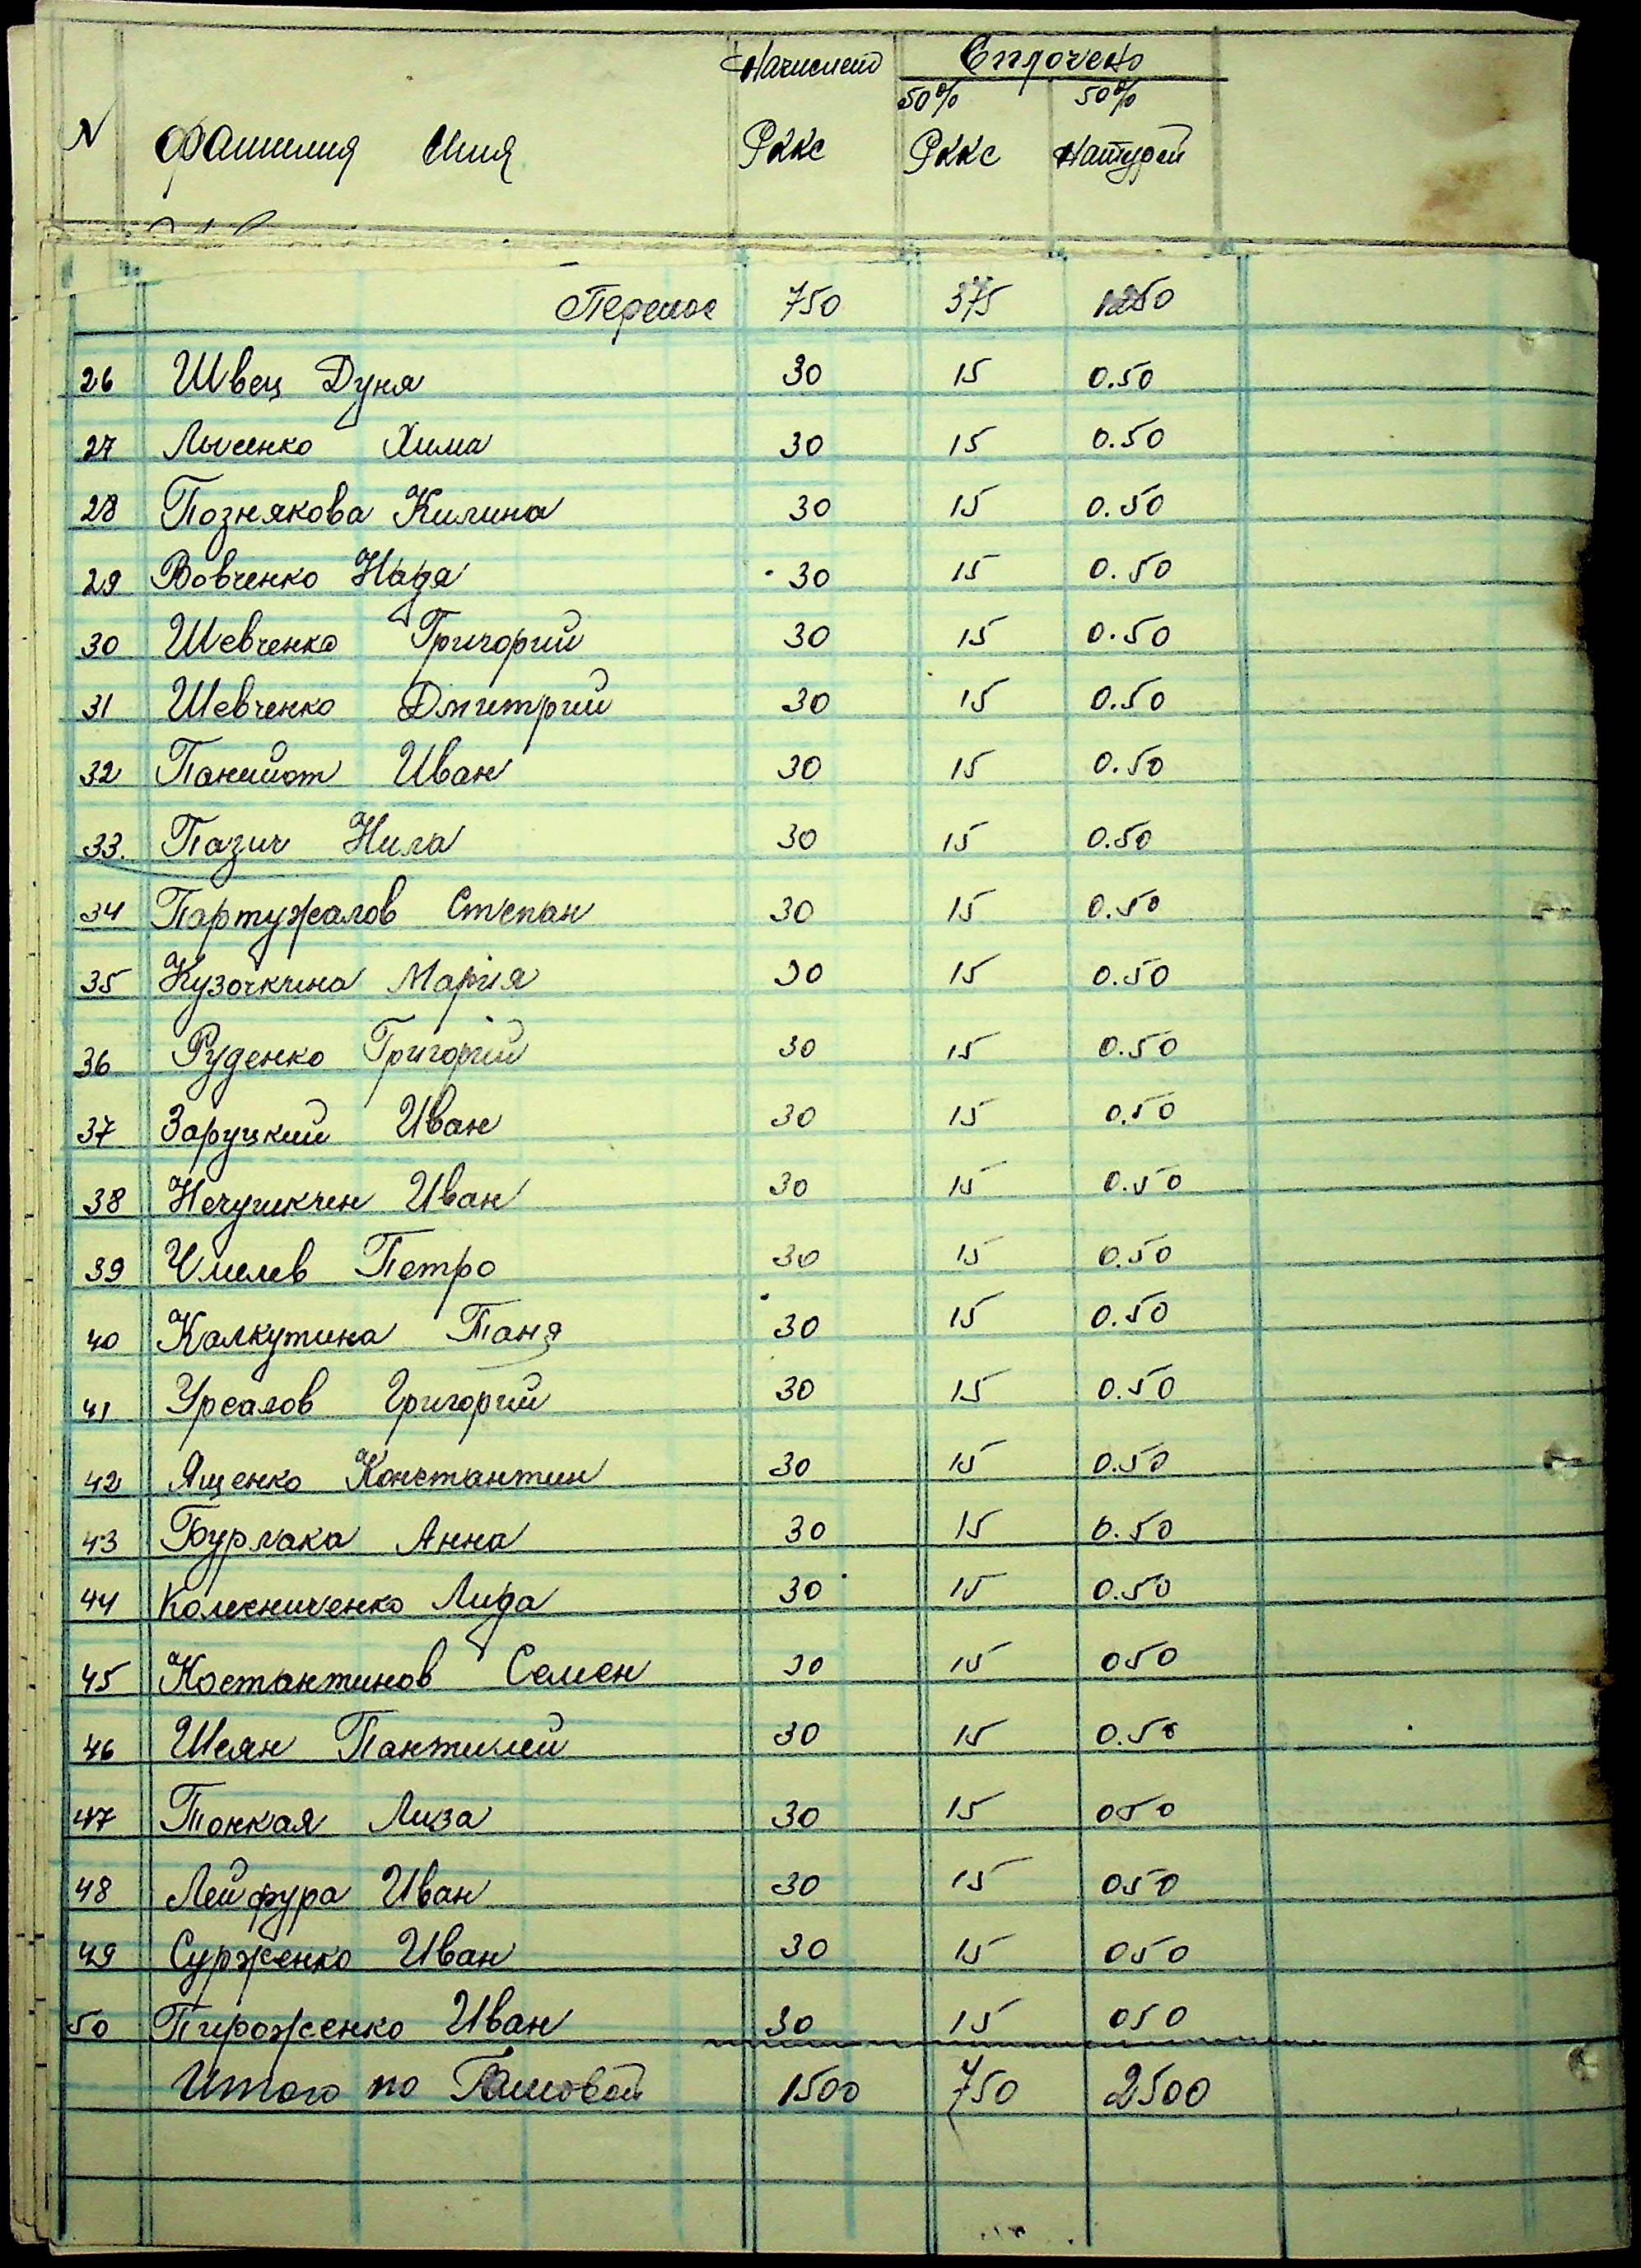 Начислено Сплочено
50% 50%
N Фамилия Имя Рккс Рккс Натурой
Перенос 750 375 1250
26 Швец Дуня 30 15 0.50
27 Лысенко Хима 30 15 0.50
28 Познякова Килина 30 15 0.50
29 Вовченко Надя 30 15 0.50
30 Шевченко Григорий 30 15 0.50
31 Шевченко Дмитрий 30 15 0.50
32 Панийот Иван 30 15 0.50
33. Пазич Нила 30 15 0.50
34 Партужалов Степан 30 15 0.50
35 Кузочкина Мария 30 15 0.50
36 Руденко Григорий 30 15 0.50
37 Заруцкий Иван 30 15 0.50
38 Иван 30 15 0.50
39 Чмелев Петро 30 15 0.50
40 Калкутина Таня 30 15 0.50
41 Урсалов Григорий 30 15 0.50
42 Ященко Константин 30 15 0.50
43 Бурлака Анна 30 15 0.50
44 Колесниченко Лида 30 15 0.50
45 Костантинов Семен 30 15 050
46 Шеян Пантилей 30 15 0.50
47 Тонкая Лиза 30 15 050
48 Лейфура Иван 30 15 050
49 Сурженко Иван 30 15 050
50 Пироженко Иван 30 15 050
Итого по 1500 750 2500